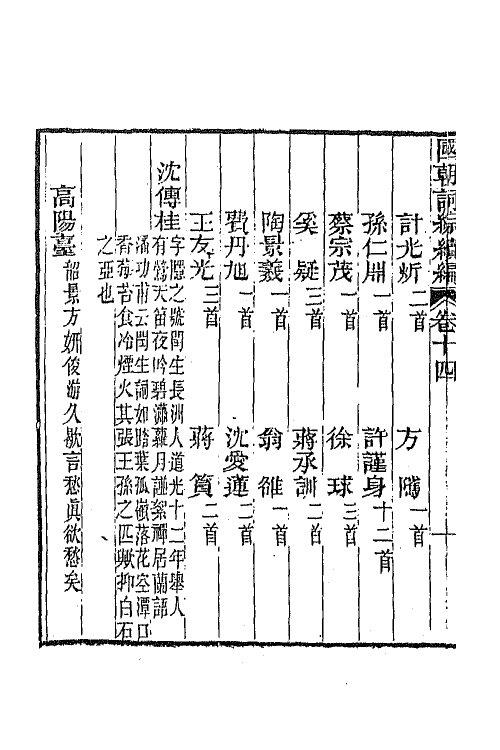 國朝詞綜續編 卷十四 一
計光炘二首 方隅一首
孫仁淵一首 許謹身十二首
蔡宗茂一首 徐球三首
奚疑三首 蔣承訓二首
陶景羲一首 翁雒一首
費丹旭一首 沈愛蓮二首
王友光三首 蔣寘二首
沈傳桂字隱之號閏生長洲人道光十二年舉人
有鶯天笛夜吟碧瀟蘿月讌絮禪居蘭語
潘功甫云閏生詞如踏葉孤嶽落花空潭口
香莓苔食冷煙火其張王孫之匹歟抑白石
之亞也
高陽臺韶景方妍俊游久歇言愁眞欲愁矣